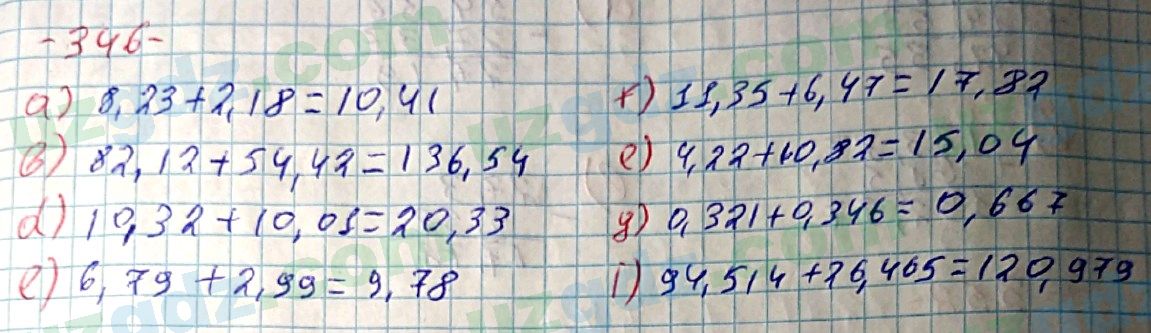 -346-
a) 8,23+2,18=10,41
b) 82,12+54,42=136,54
d) 10,32+10,01=20,33
e) 6,79+2,99=9,78
f) 11,35+6,47=17,82
e) 4,22+10,82=15,04
g) 0,321+0,346=0,667
i) 94,514+26,465=120,979